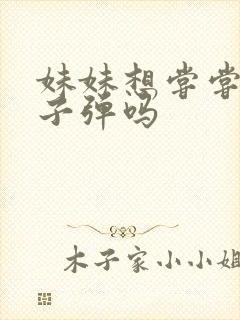 妹妹想尝尝
子弹吗
木子家小小姐